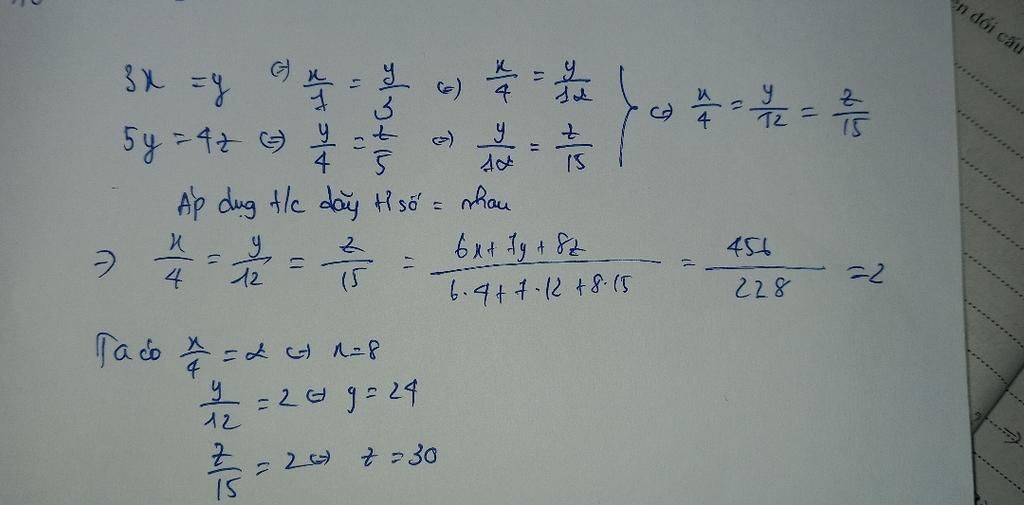 3x = y ⇔ x/1 = y/3 ⇔ x/4 = y/12
5y = 4z ⇔ y/4 = z/5 ⇔ y/12 = z/15 } ⇔ x/4 = y/12 = z/15
Áp dụng t/c dãy tỉ số = nhau
⇒ x/4 = y/12 = z/15 = (6x + 7y + 8z)/(6·4 + 7·12 + 8·15) = 456/228 = 2
Ta có x/4 = 2 ⇔ x = 8
y/12 = 2 ⇔ y = 24
z/15 = 2 ⇔ z = 30
ên đổi cấu